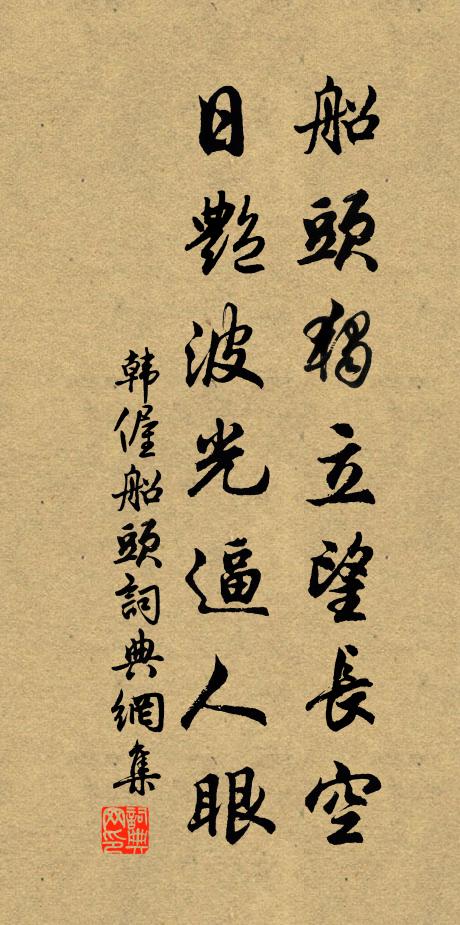 船頭獨立望長空
日艷波光逼人眼
韓偓船頭詞典網集
詞典网印